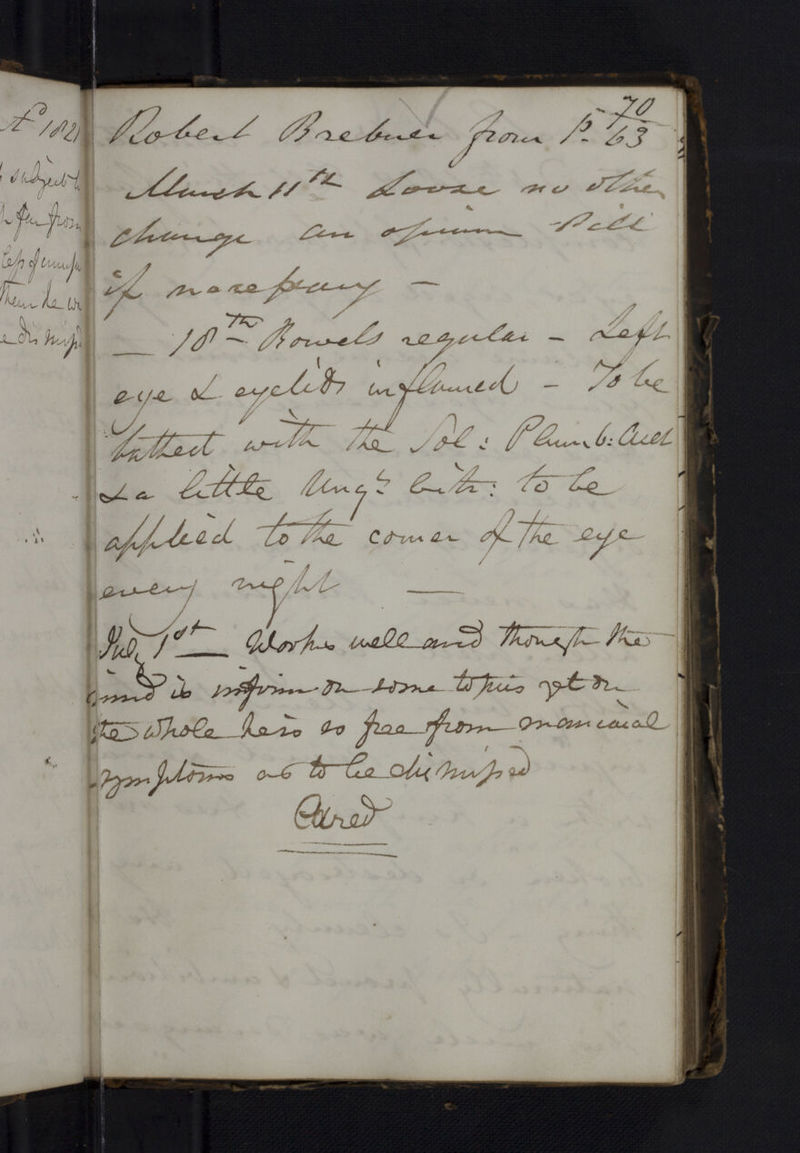 70
Robert Brebner from P. 63
March 11th Loose no other
change an opium Pill
if necessary —
— 18th Bowels regular — Left
eye & eyelids inflamed — To be
bathed with the Sol: Plumb: Acet
& a little Ungt. Citr: to be
applied to the corner of the eye
every night —
July 1st — Works well and though the
mind is infirm on some topics yet on
the whole he is so free from maniacal
symptoms as to be dismissed
Cured